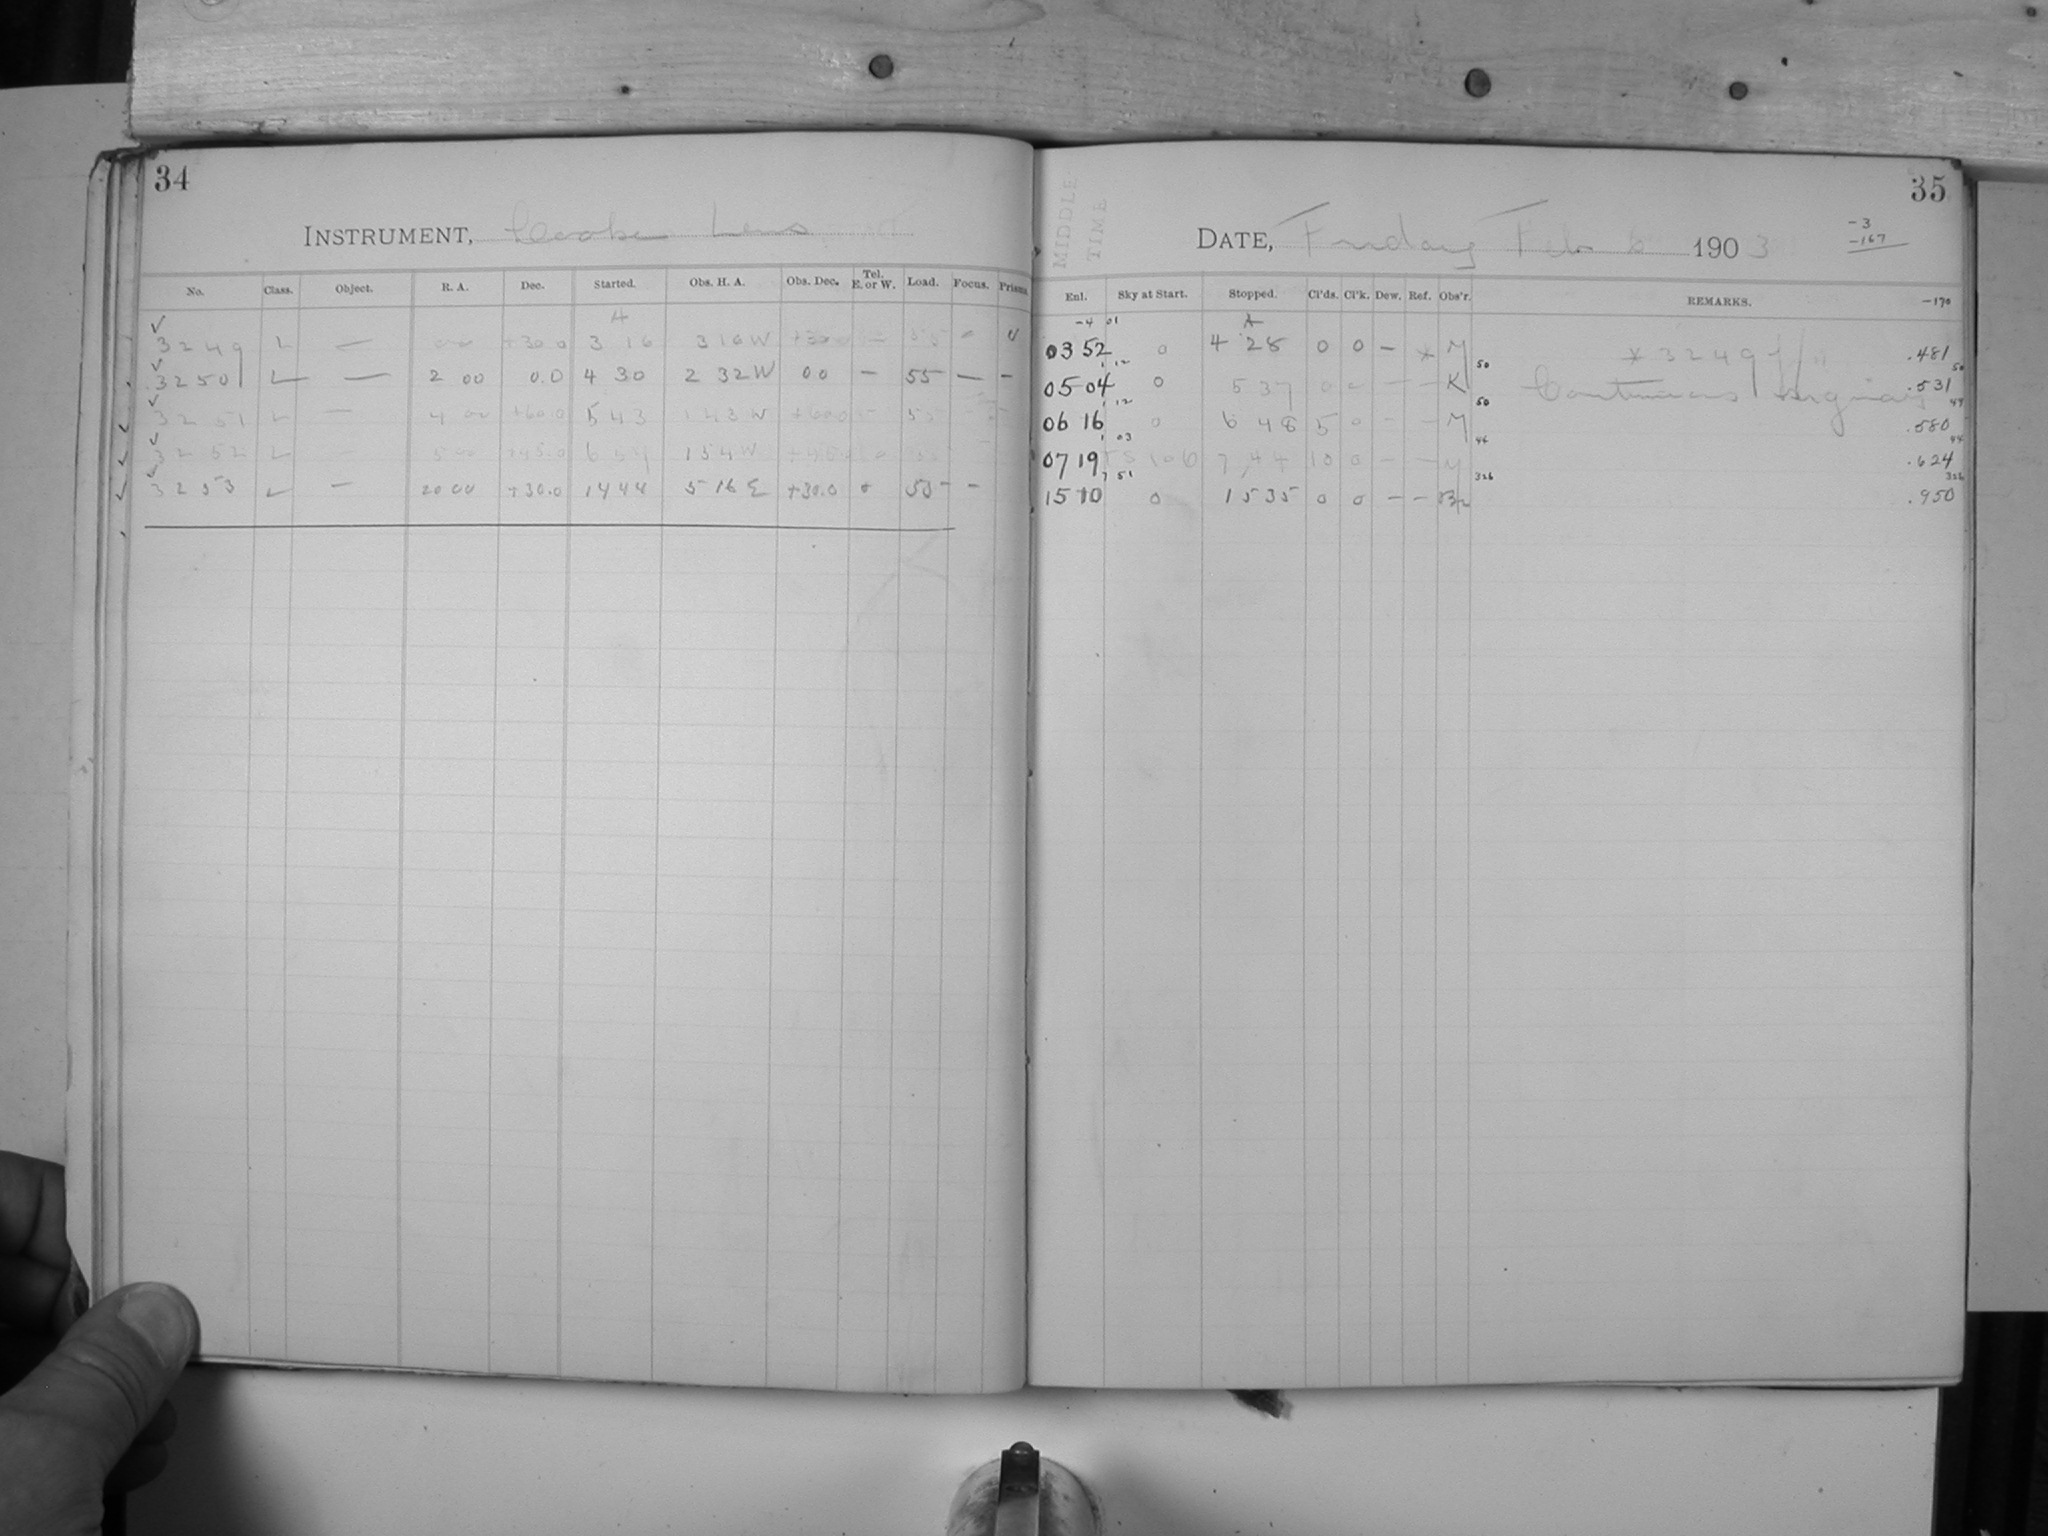 34
INSTRUMENT, Cooke Lens
No. Class. Object. R. A. Dec. Started. Obs. H. A. Obs. Dec. Tel. E. or W. Load. Focus. Prism.
3249 L — 00 00 +30.0 3 16 3 16 W +30.0 — 55 - 0
3250 L — 2 00 0.0 4 30 2 32 W 00 — 55 — —
3251 L — 4 00 +60.0 5 43 1 43 W +60.0 — 55
3252 L — 5 00 +45.0 6 54 1 54 W
3253 L — 20 00 +30.0 14 44 5 16 E +30.0 0 55 —
35
MIDDLE
TIME
DATE, Friday Feb 6 1903
-3
-167
Enl. Sky at Start. Stopped. Cl'ds. Cl'k. Dew. Ref. Obs'r. REMARKS. -170
-4 01
03 52 0 4 28 0 0 — * M * 3249 .481
1 12 50 50
05 04 0 5 37 0 0 — — K Continuous .531
1 12 50 49
06 16 0 6 48 5 0 - - M .580
1 03 44
07 19 7 44 10 0 — — M .624
7 51 326 326
15 10 0 15 35 0 0 — — .950